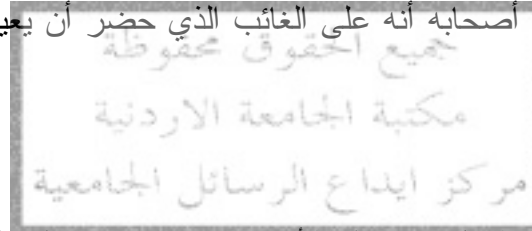 أصحابه أنه على الغائب الذي حضر أن يعيد
جميع الحقوق محفوظة
مكتبة الجامعة الاردنية
مركز ايداع الرسائل الجامعية